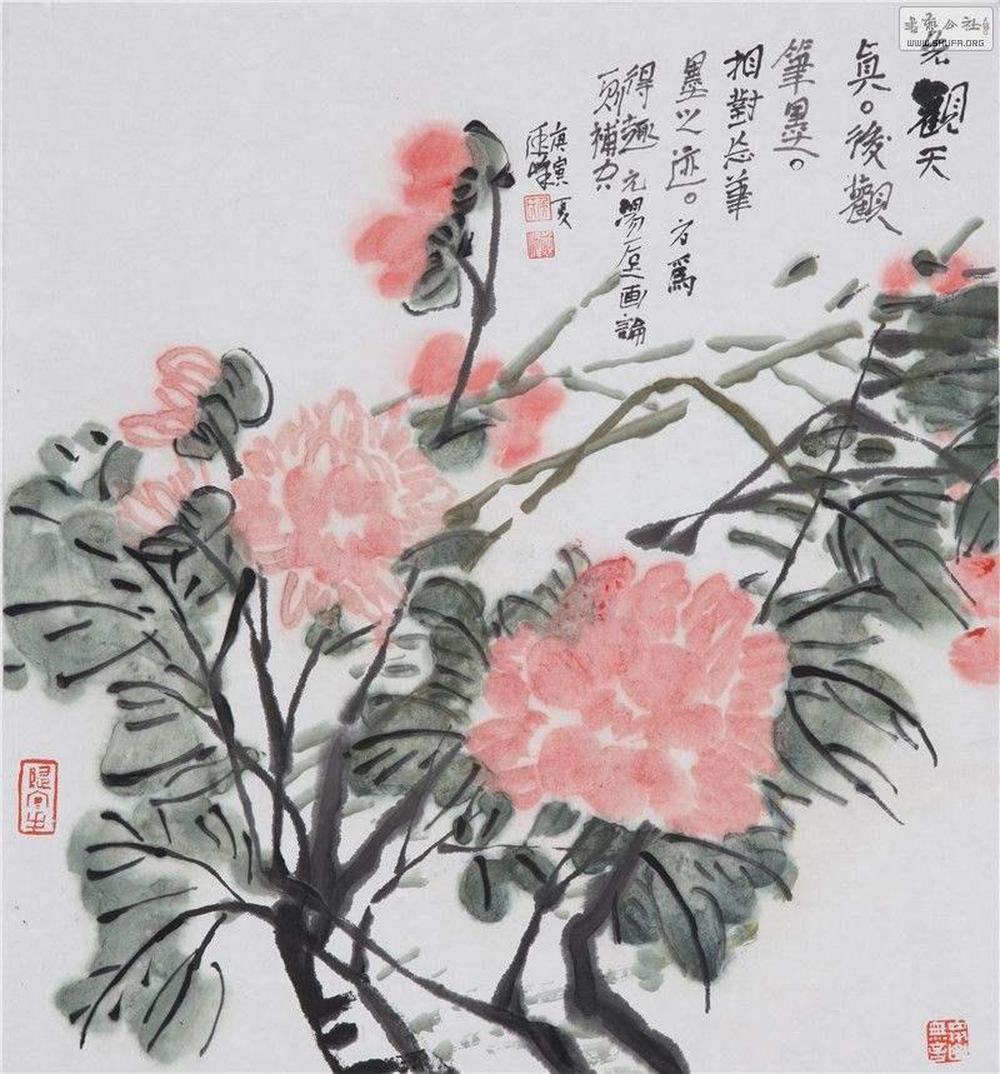 書藝公社
WWW.SHUFA.ORG
先觀天
真。後觀
筆墨。
相對忘筆
墨之迹。方爲
得趣 元湯垕画論
一則補空
庚寅夏